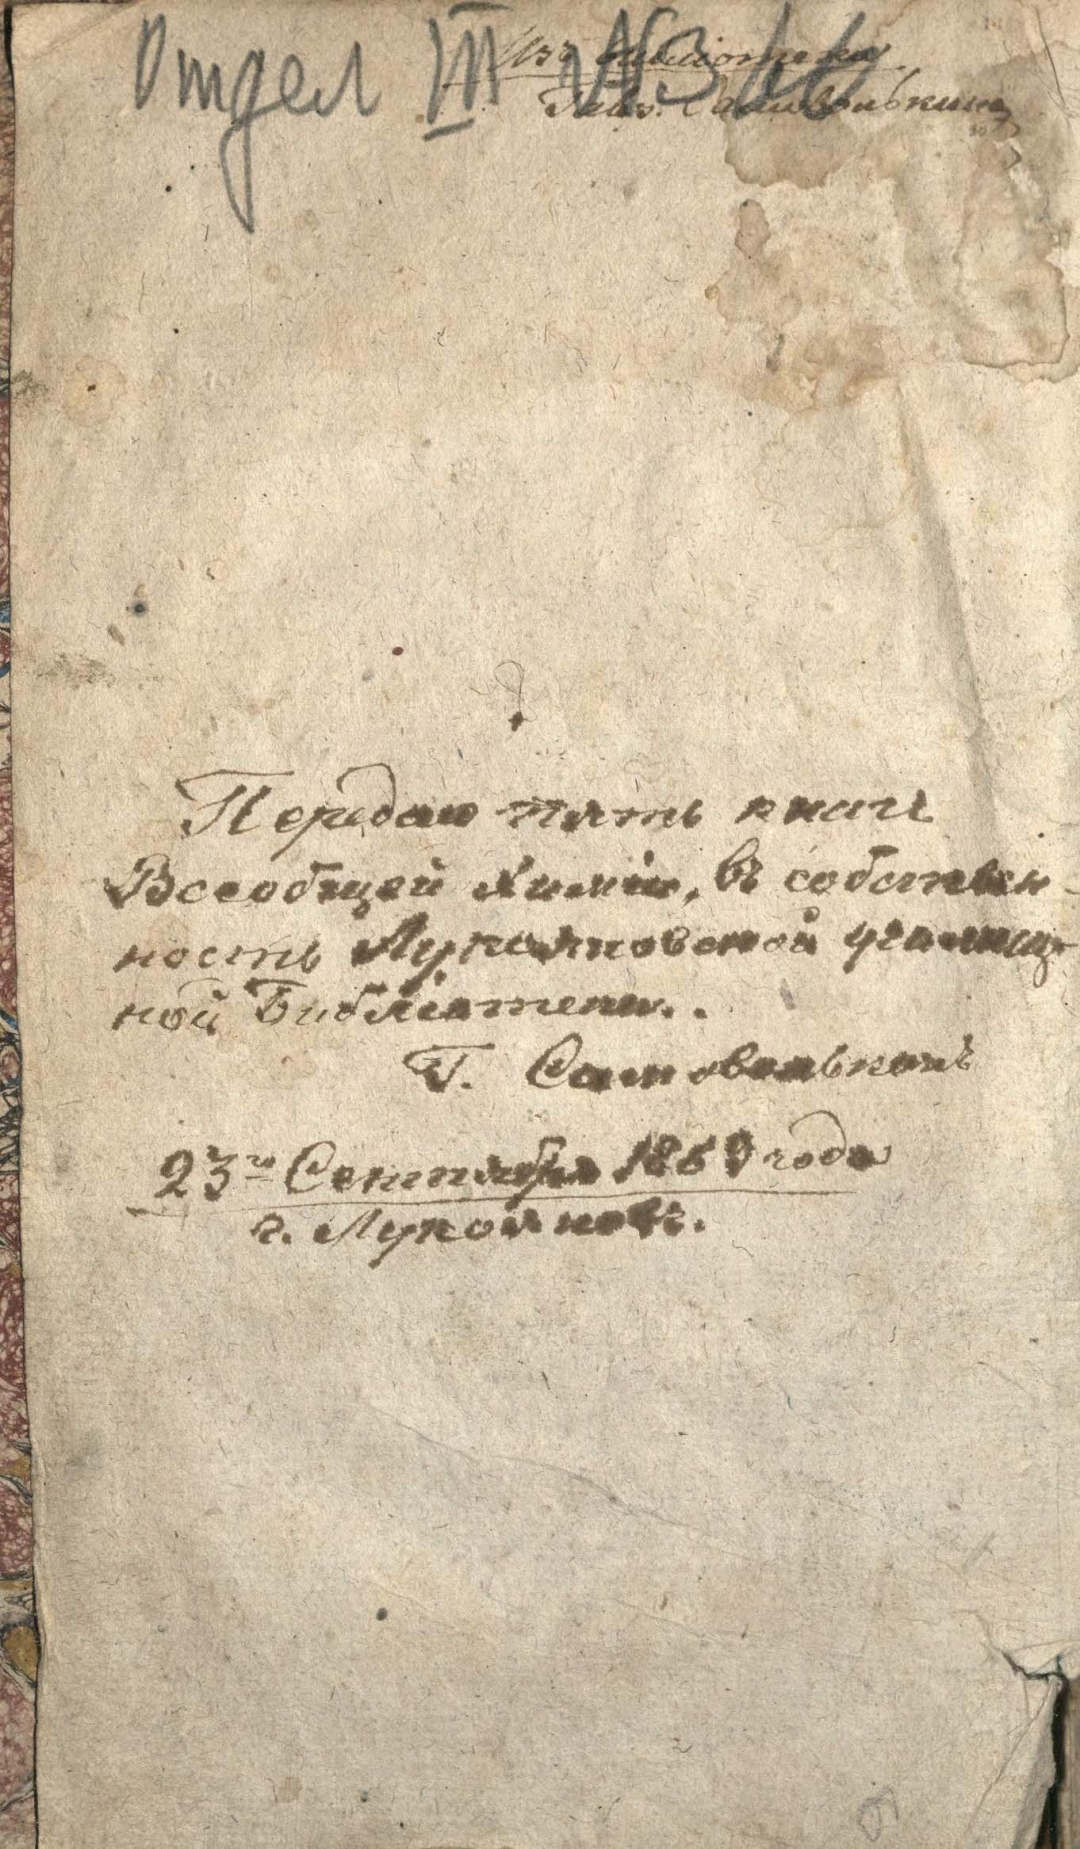 Отдел III №
Изъ библіотеки
Самоволькина
Передаю пять книгъ
Всеобщей Химіи, въ собствен-
ность Лукояновской училищ-
ной Библіотеки..
Г. Самоволькинъ
23го Сентября 1869 года
г. Лукояновъ.